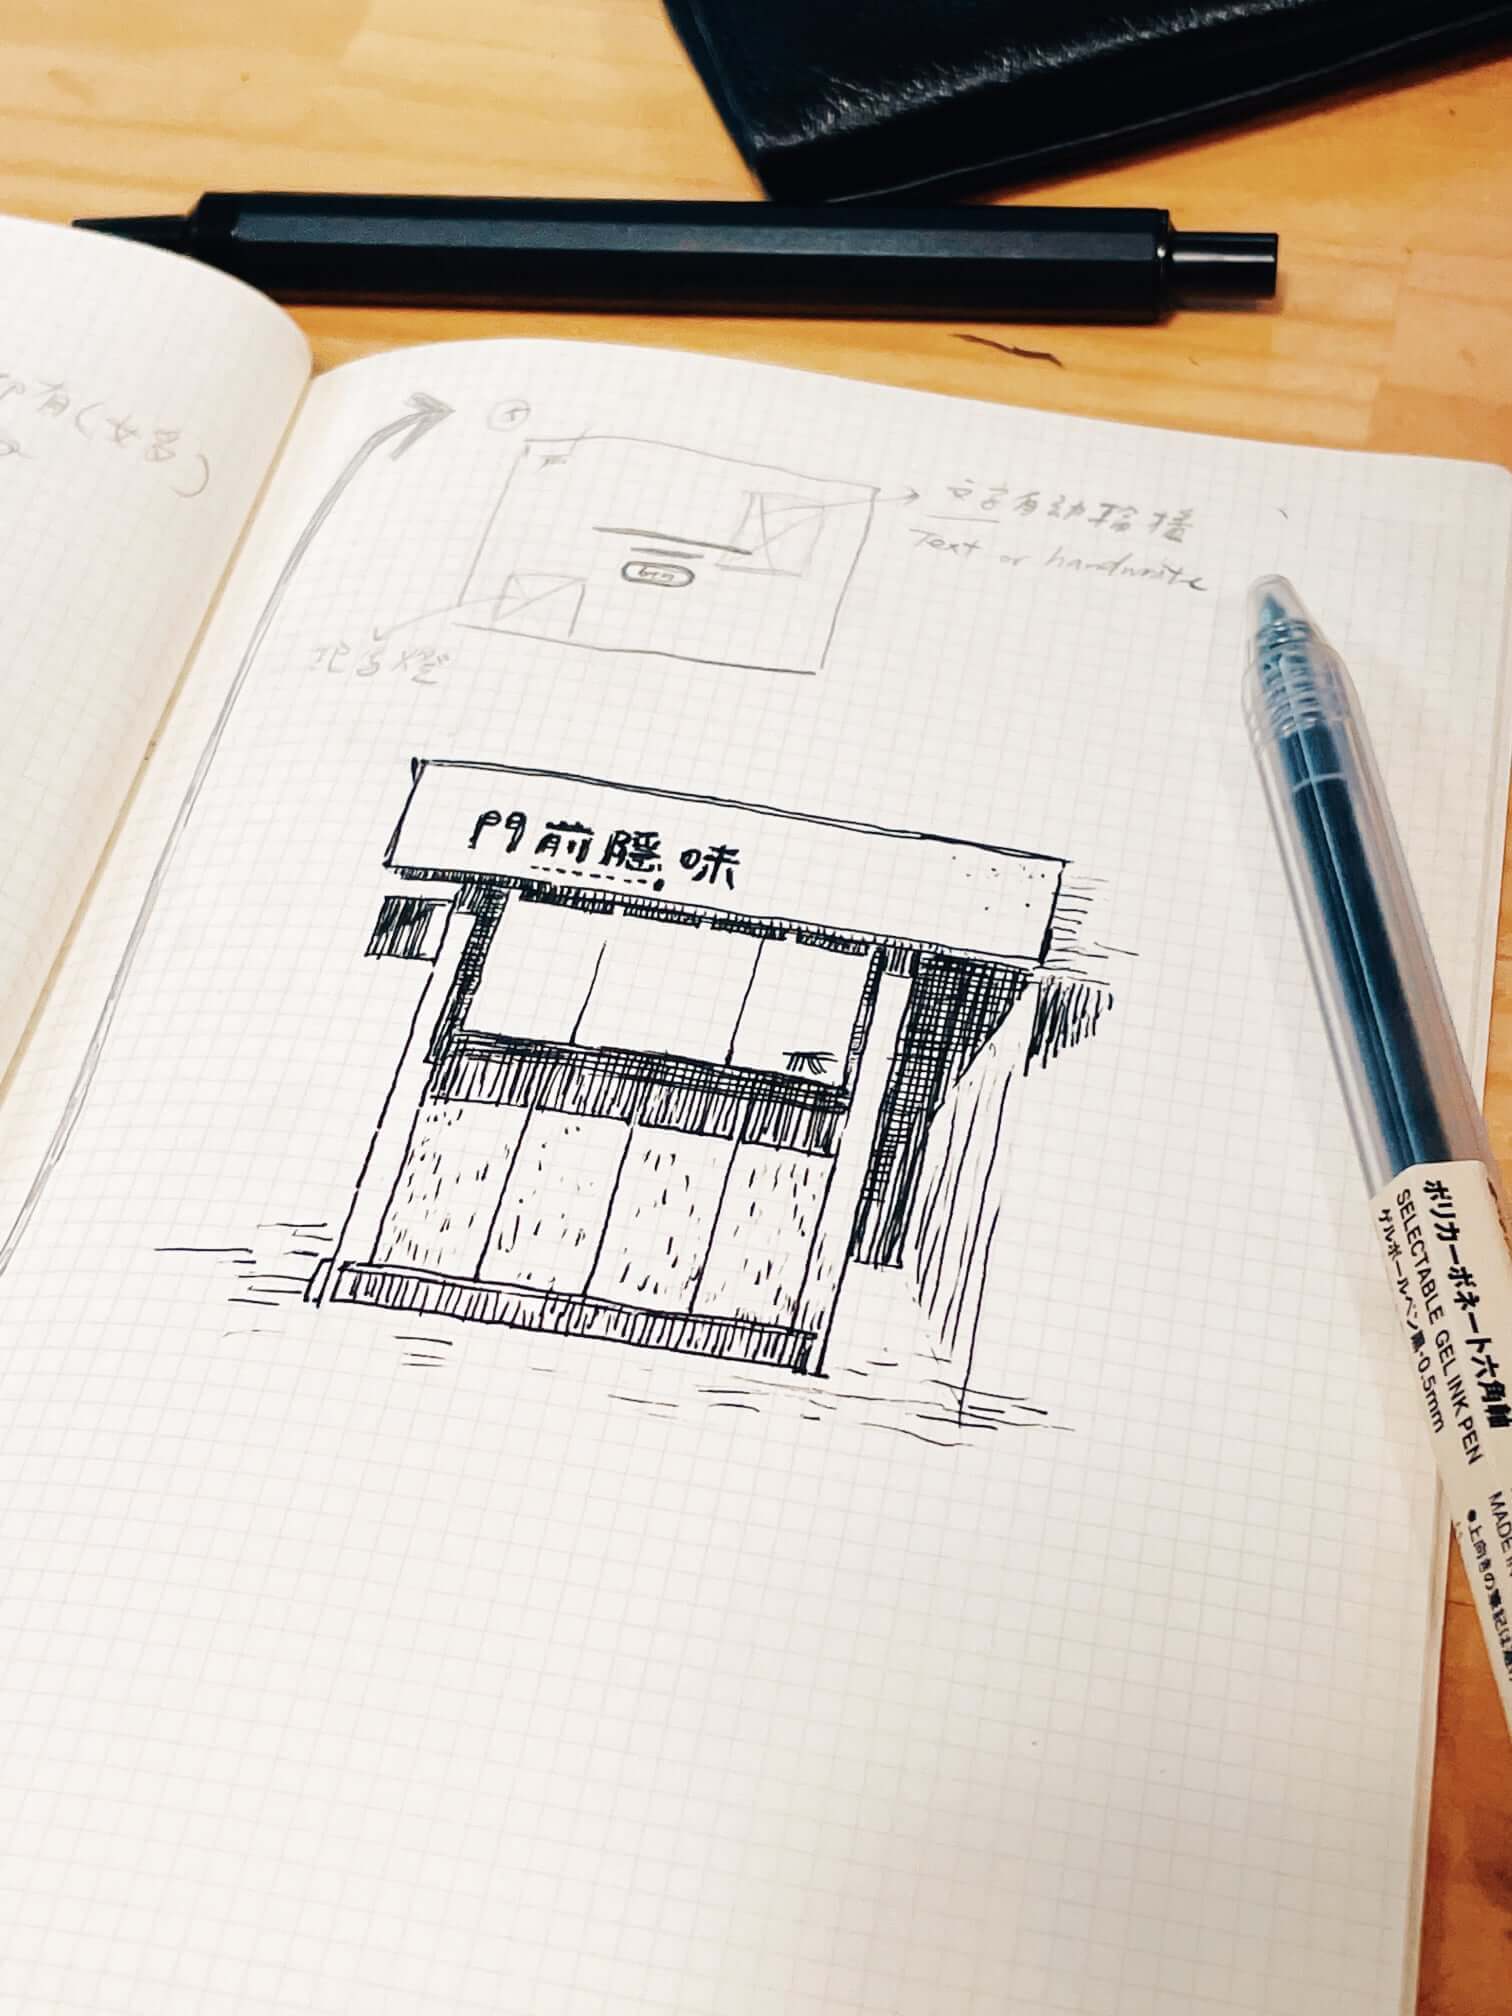 文字自動輪播
Text or handwrite
btn
門前隱味
ポリカーボネート六角軸
SELECTABLE GEL INK PEN
ゲルボールペン黒・0.5mm
MADE IN
●上向きの筆記は避け